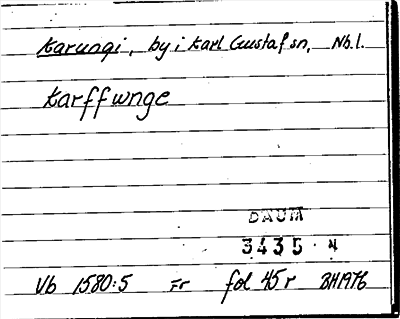 Karungi, by i Karl Gustaf sn, Nb.l.
Karffwnge
DAUM
3435 · N
Vb 1580:5 Fr fol 45r BH1976